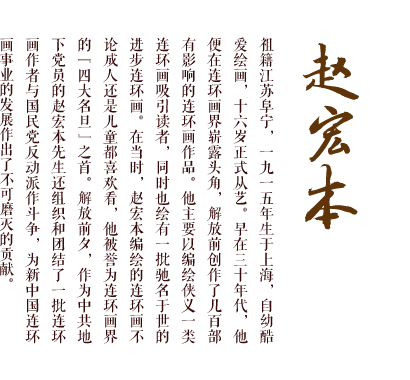 赵宏本
祖籍江苏阜宁，一九一五年生于上海，自幼酷
爱绘画，十六岁正式从艺。早在三十年代，他
便在连环画界崭露头角，解放前创作了几百部
有影响的连环画作品。他主要以编绘侠义一类
连环画吸引读者，同时也绘有一批驰名于世的
进步连环画。在当时，赵宏本编绘的连环画不
论成人还是儿童都喜欢看，他被誉为连环画界
的「四大名旦」之首。解放前夕，作为中共地
下党员的赵宏本先生还组织和团结了一批连环
画作者与国民党反动派作斗争，为新中国连环
画事业的发展作出了不可磨灭的贡献。